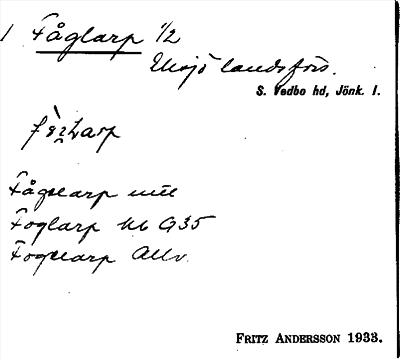 1 Fåglarp 1/2
Eksjö landsförs.
S. Vedbo hd, Jönk. l.
Fåglarp
Foglarp Kb G35
Foglarp Allv.
FRITZ ANDERSSON 1933.